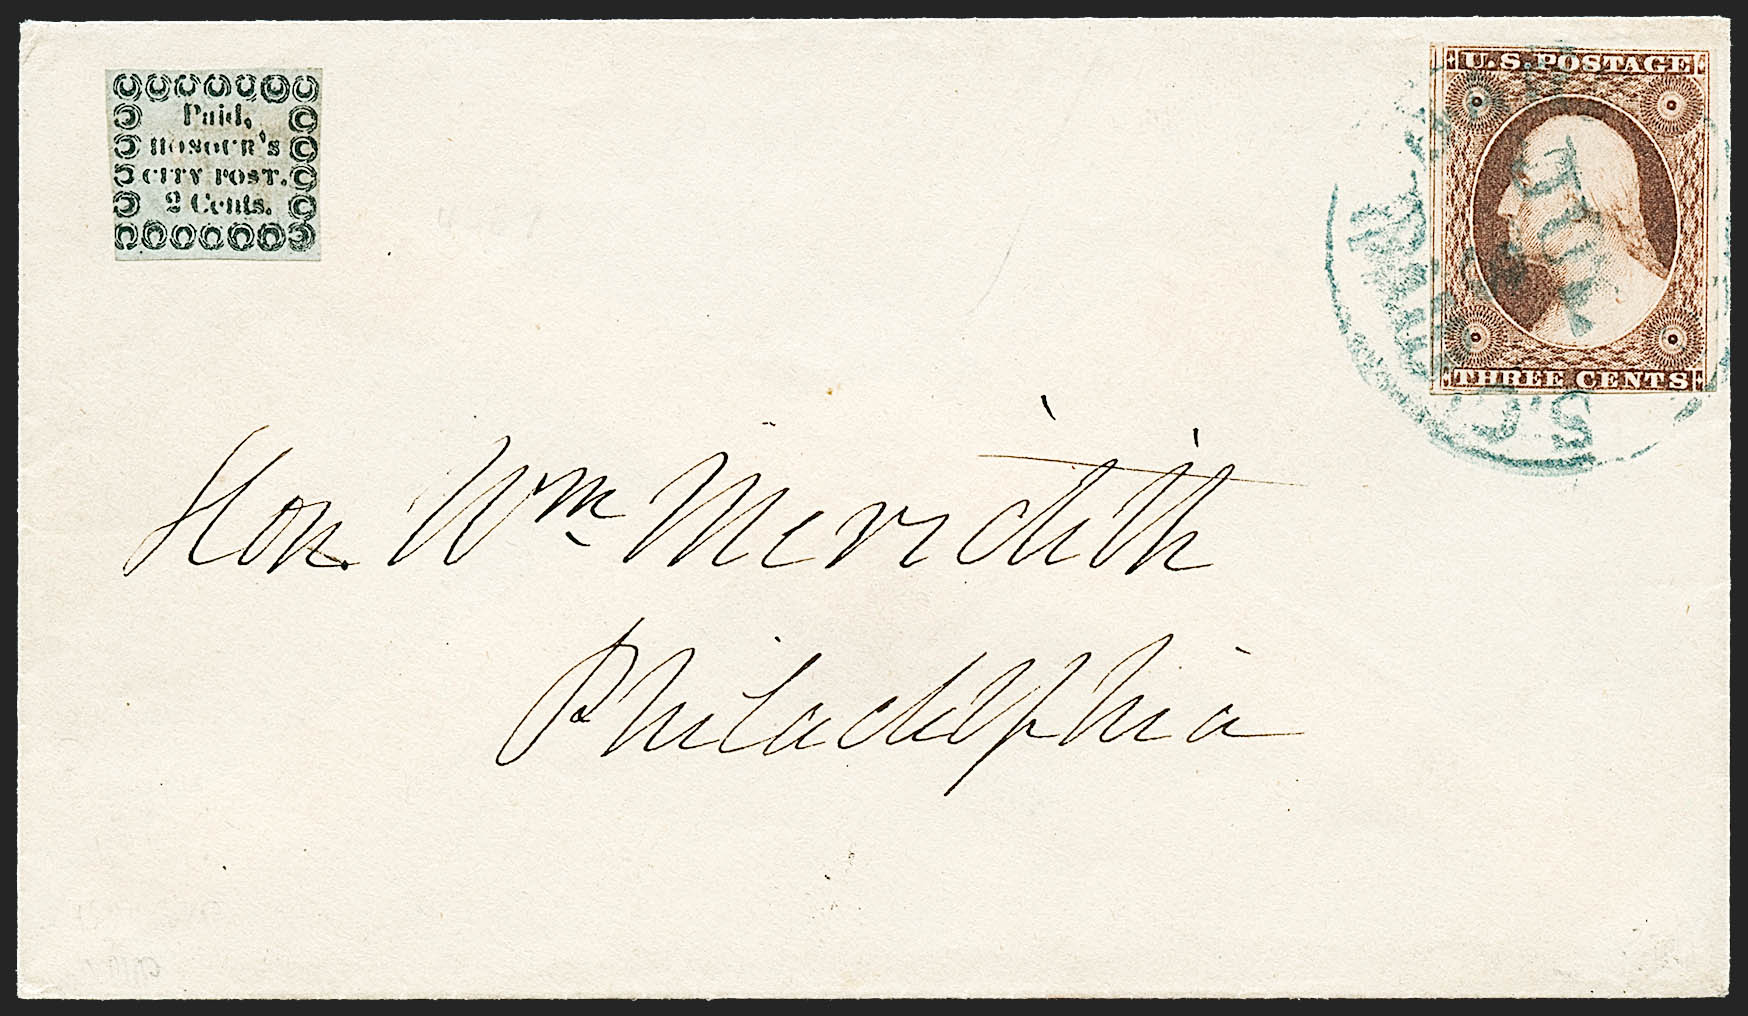 Paid,
HONOUR'S
CITY POST.
2 Cents.
U.S. POSTAGE
THREE CENTS
JUL
S.C.
Hon. Wm Meridith
Philadelphia